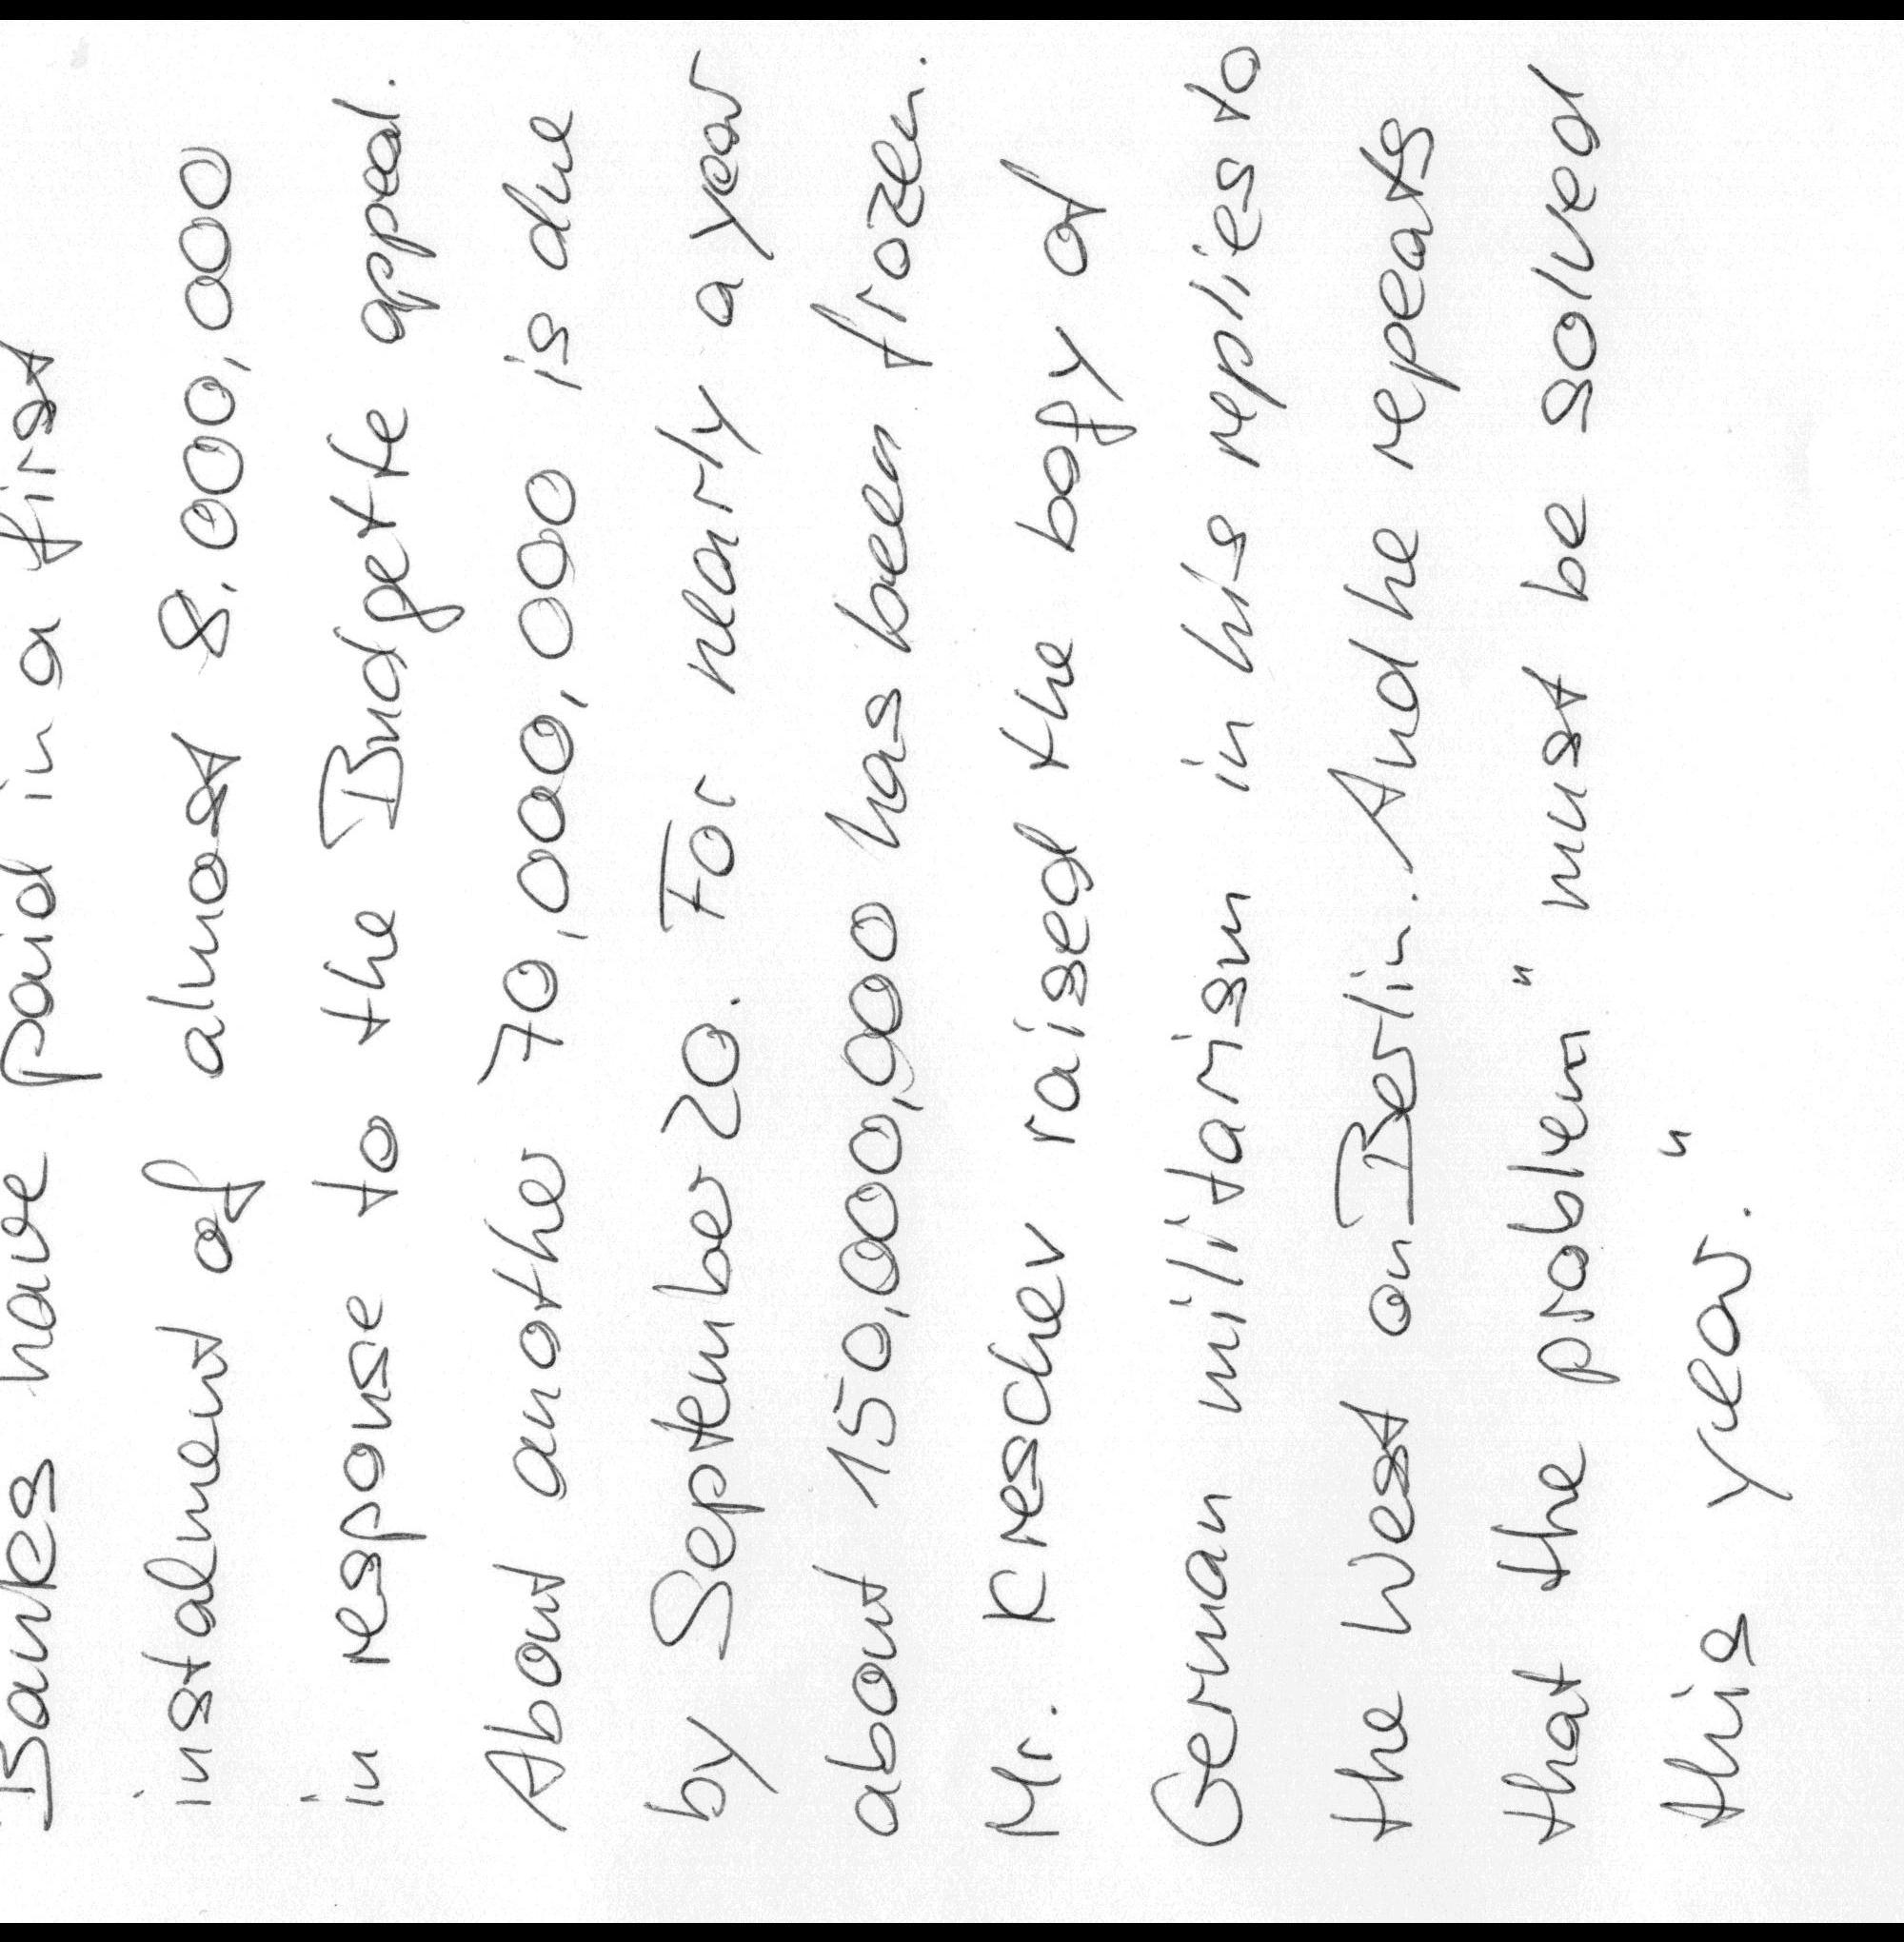 Banks have paid in a first
instalment of almost 8,000,000
in response to the Budgette appeal.
About another 70,000,000 is due
by September 20. For nearly a year
about 150,000,000 has been frozen.
Mr. Kreschev raised the bofy of
German militarism in his replies to
the West on Berlin. And he repeats
that the problem "must be solved
this year."